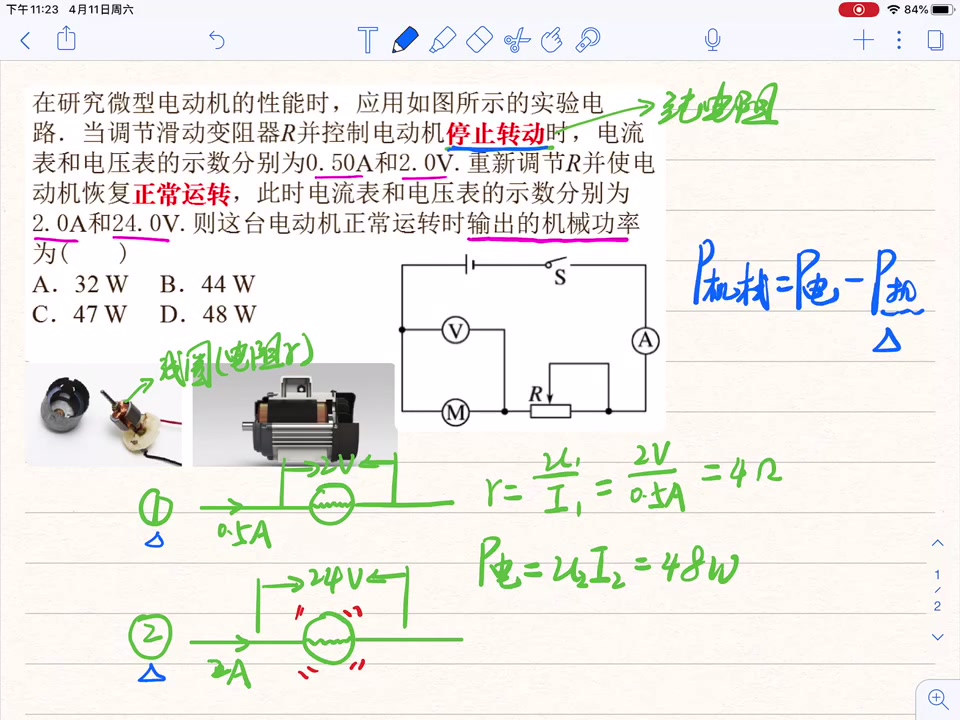 下午11:23 4月11日周六 84%
在研究微型电动机的性能时，应用如图所示的实验电
路．当调节滑动变阻器R并控制电动机停止转动时，电流
表和电压表的示数分别为0.50A和2.0V.重新调节R并使电
动机恢复正常运转，此时电流表和电压表的示数分别为
2.0A和24.0V.则这台电动机正常运转时输出的机械功率
为(　　)
A．32 W　B．44 W
C．47 W　D．48 W
纯电阻
P机械=P电-P热
S
V
A
M
R
线圈(电阻r)
① 0.5A 2V
r=U₁/I₁=2V/0.5A=4Ω
P电=U₂I₂=48W
② 2A 24V
1/2